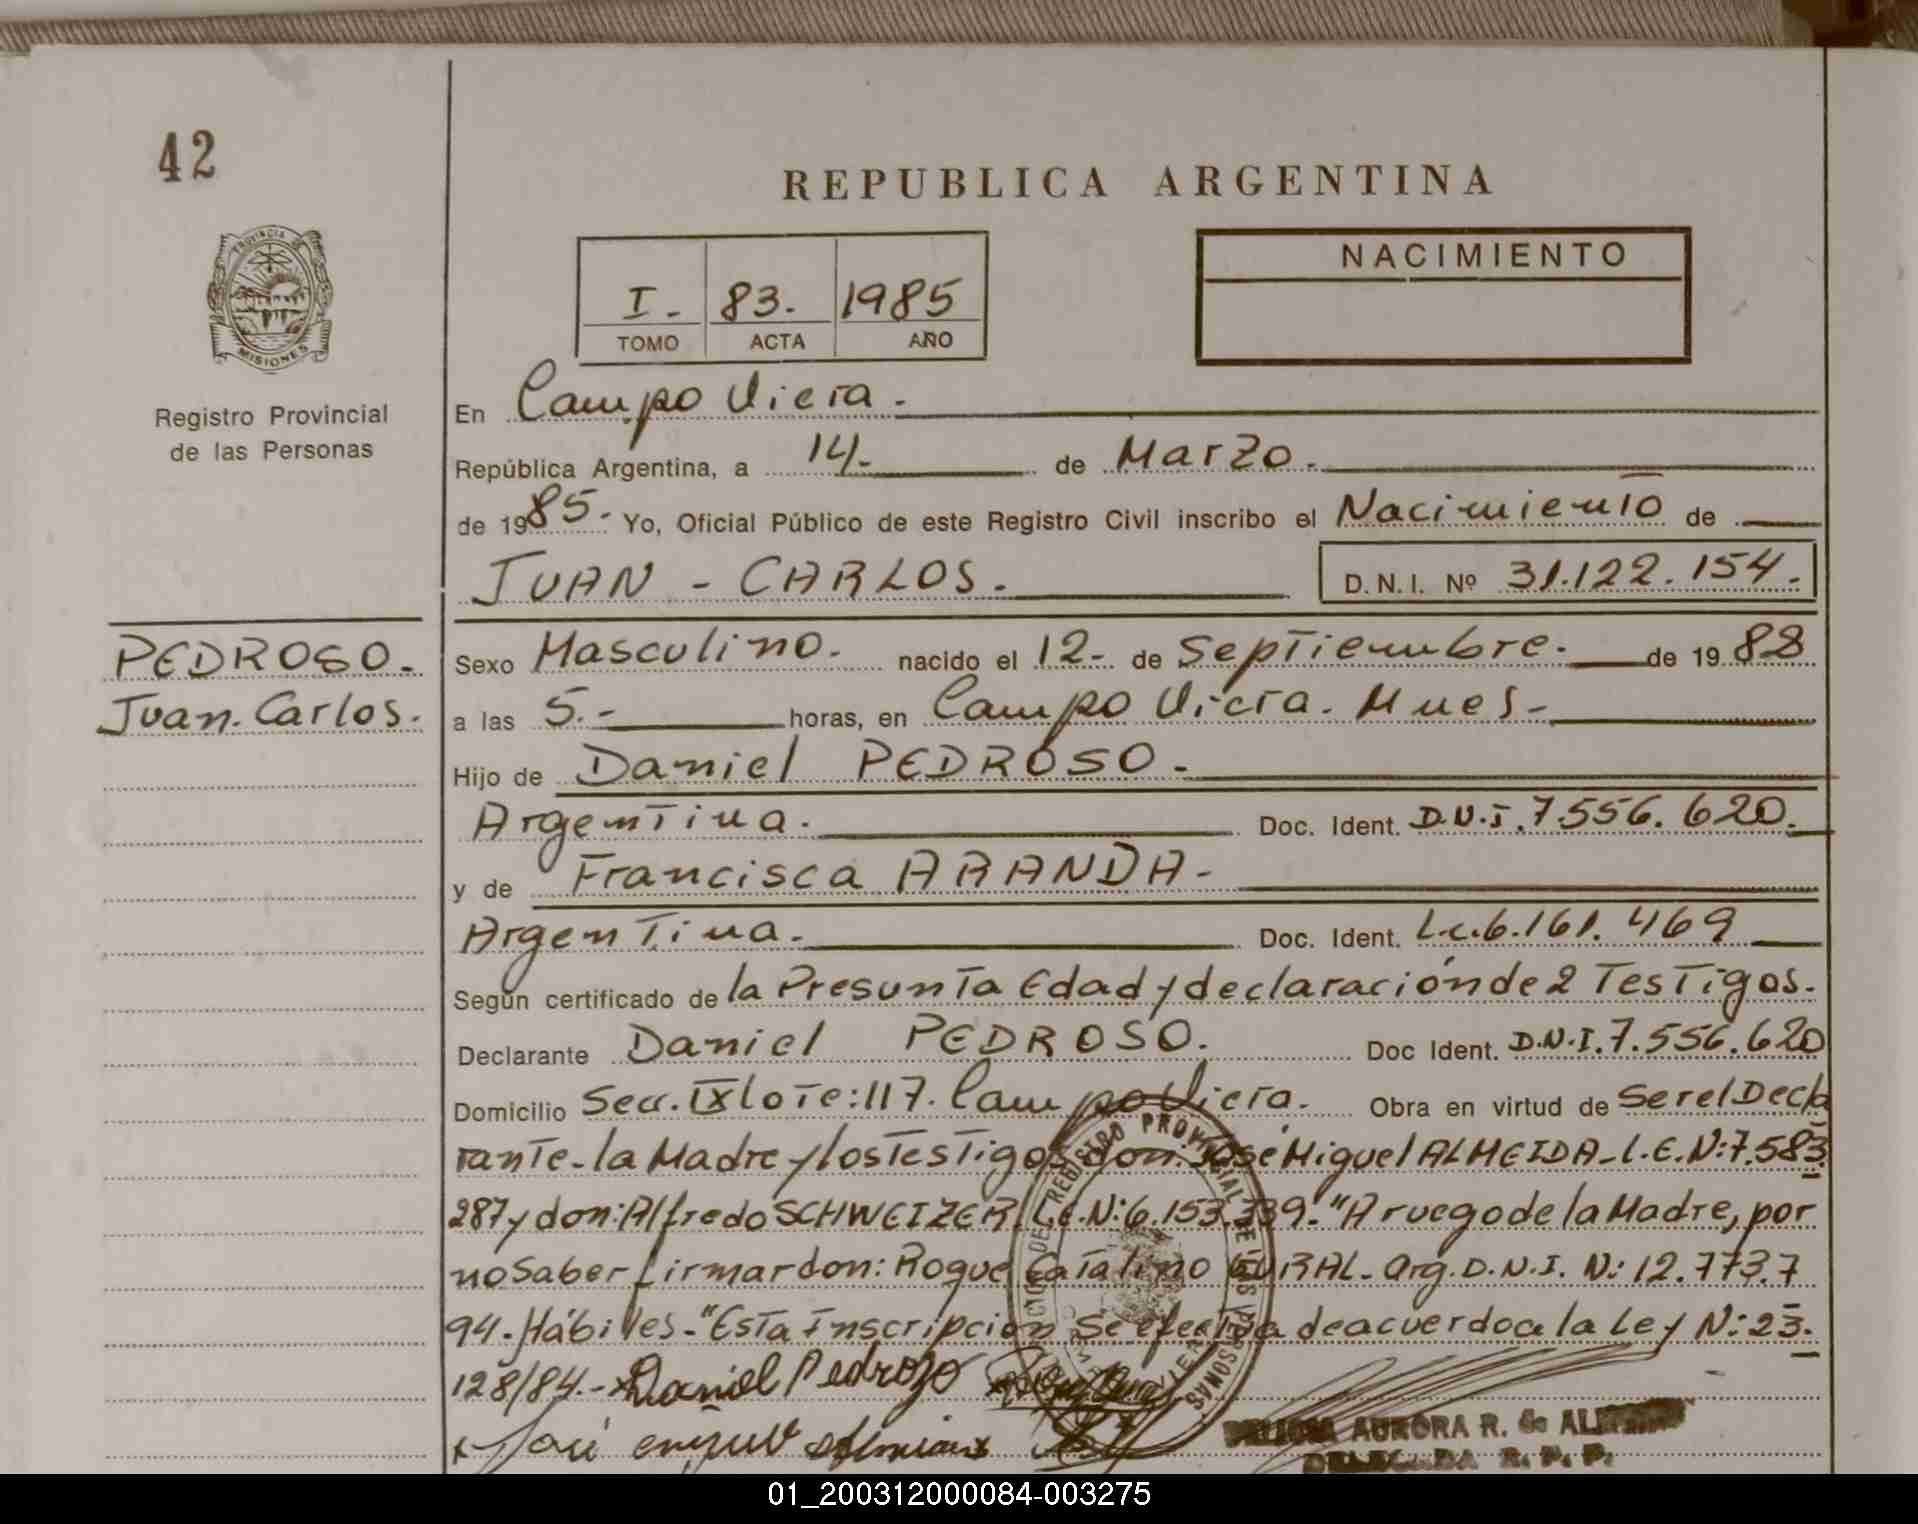 42
REPUBLICA ARGENTINA
PROVINCIA DE
MISIONES
Registro Provincial
de las Personas
I. 83. 1985
TOMO ACTA AÑO
NACIMIENTO
En Campo Viera.
República Argentina, a 14. de Marzo.
de 1985. Yo, Oficial Público de este Registro Civil inscribo el Nacimiento de
JUAN - CARLOS. D.N.I. Nº 31.122.154.
PEDROSO.
Juan. Carlos.
Sexo Masculino. nacido el 12. de Septiembre. de 1982
a las 5. horas, en Campo Viera. Mnes.
Hijo de Daniel PEDROSO.
Argentina. Doc. Ident. D.N.I. 7.556.620.
y de Francisca ARANDA.
Argentina. Doc. Ident. L.C. 6.161.469
Según certificado de la Presunta Edad y declaración de 2 Testigos.
Declarante Daniel PEDROSO. Doc Ident. D.N.I. 7.556.620
Domicilio Secc. IX lote: 117. Campo Viera. Obra en virtud de Ser el Decla
rante - la Madre y los Testigos don: José Miguel ALMEIDA - L.E. N: 7.583
287 y don: Alfredo SCHWEIZER L.E. N: 6.153.339. "A ruego de la Madre, por
no Saber firmar don: Roque Catalino Arg. D.N.I. N: 12.773.7
94. Hábiles - "Esta Inscripción se efectua de acuerdo a la Ley N: 23.
128/84. - x Daniel Pedrozo
REGISTRO PROVINCIAL DE LAS PERSONAS
AURORA R. de
DELEGADA R. P. P.
01_200312000084-003275